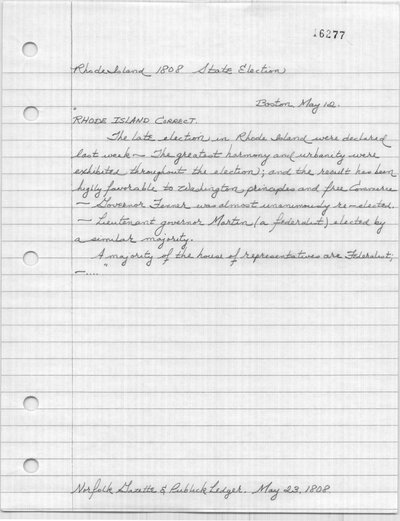 16277
Rhode Island 1808 State Election
"
Boston, May 12.
RHODE ISLAND CORRECT.
The late election in Rhode Island were declared
last week — The greatest harmony and urbanity were
exhibited throughout the election; and the result has been
highly favorable to Washington principles and free Commerce
— Governor Fenner was almost unanimously re-elected.
— Lieutenant governor Martin (a federalist) elected by
a similar majority.
A majority of the house of representatives are Federalist;
—.... "
Norfolk Gazette & Publick Ledger. May 23, 1808